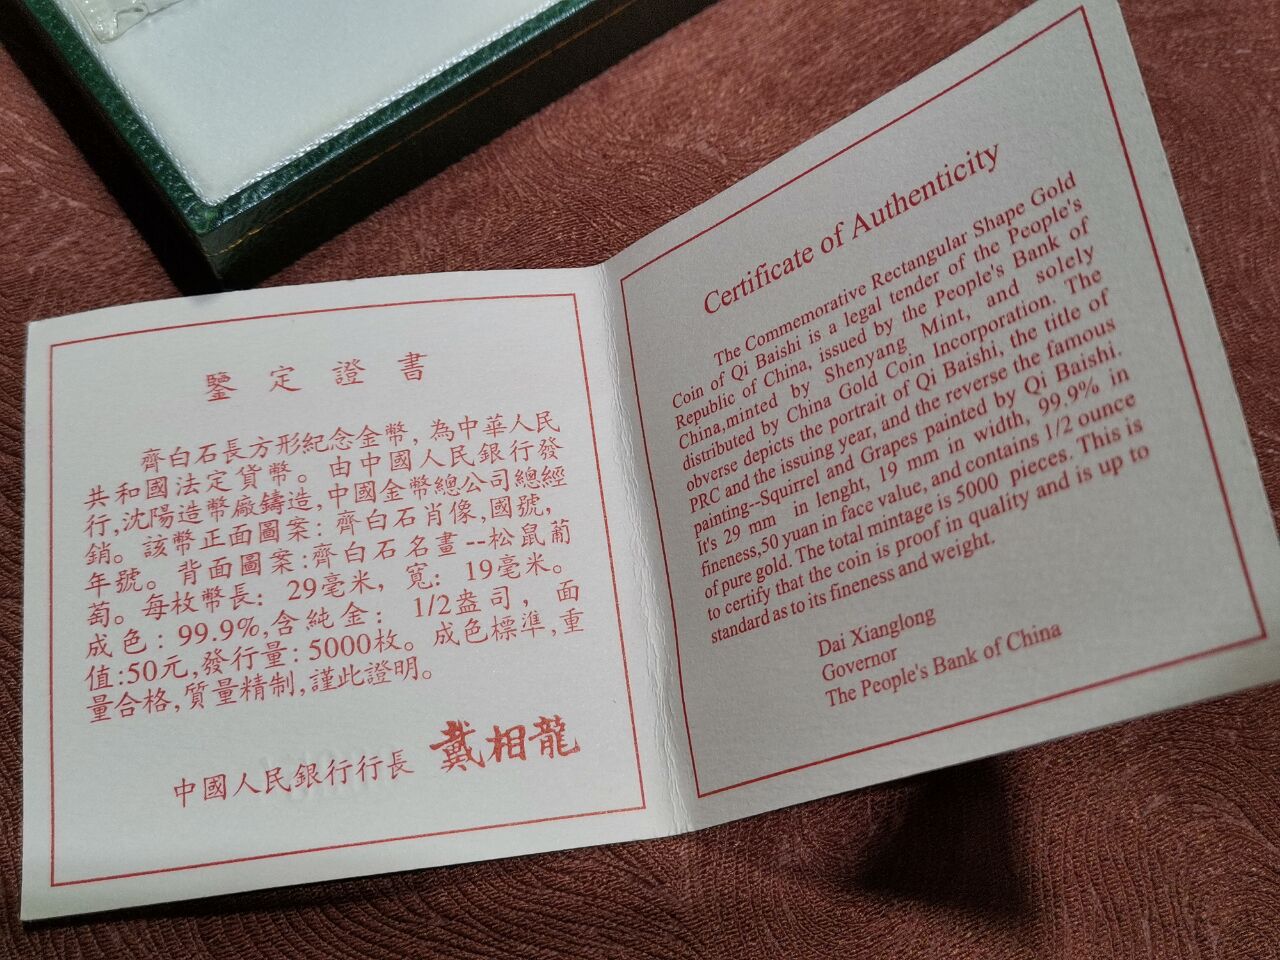 鑒定證書
齊白石長方形紀念金幣，為中華人民
共和國法定貨幣。由中國人民銀行發
行，沈陽造幣廠鑄造，中國金幣總公司總經
銷。該幣正面圖案：齊白石肖像，國號，
年號。背面圖案：齊白石名畫--松鼠葡
萄。每枚幣長：29毫米，寬：19毫米。
成色：99.9%，含純金：1/2盎司，面
值:50元，發行量：5000枚。成色標準，重
量合格，質量精制，謹此證明。
中國人民銀行行長 戴相龍
Certificate of Authenticity
The Commemorative Rectangular Shape Gold
Coin of Qi Baishi is a legal tender of the People's
Republic of China, issued by the People's Bank of
China,minted by Shenyang Mint, and solely
distributed by China Gold Coin Incorporation. The
obverse depicts the portrait of Qi Baishi, the title of
PRC and the issuing year, and the reverse the famous
painting--Squirrel and Grapes painted by Qi Baishi.
It's 29 mm in lenght, 19 mm in width, 99.9% in
fineness,50 yuan in face value, and contains 1/2 ounce
of pure gold. The total mintage is 5000 pieces. This is
to certify that the coin is proof in quality and is up to
standard as to its fineness and weight.
Dai Xianglong
Governor
The People's Bank of China